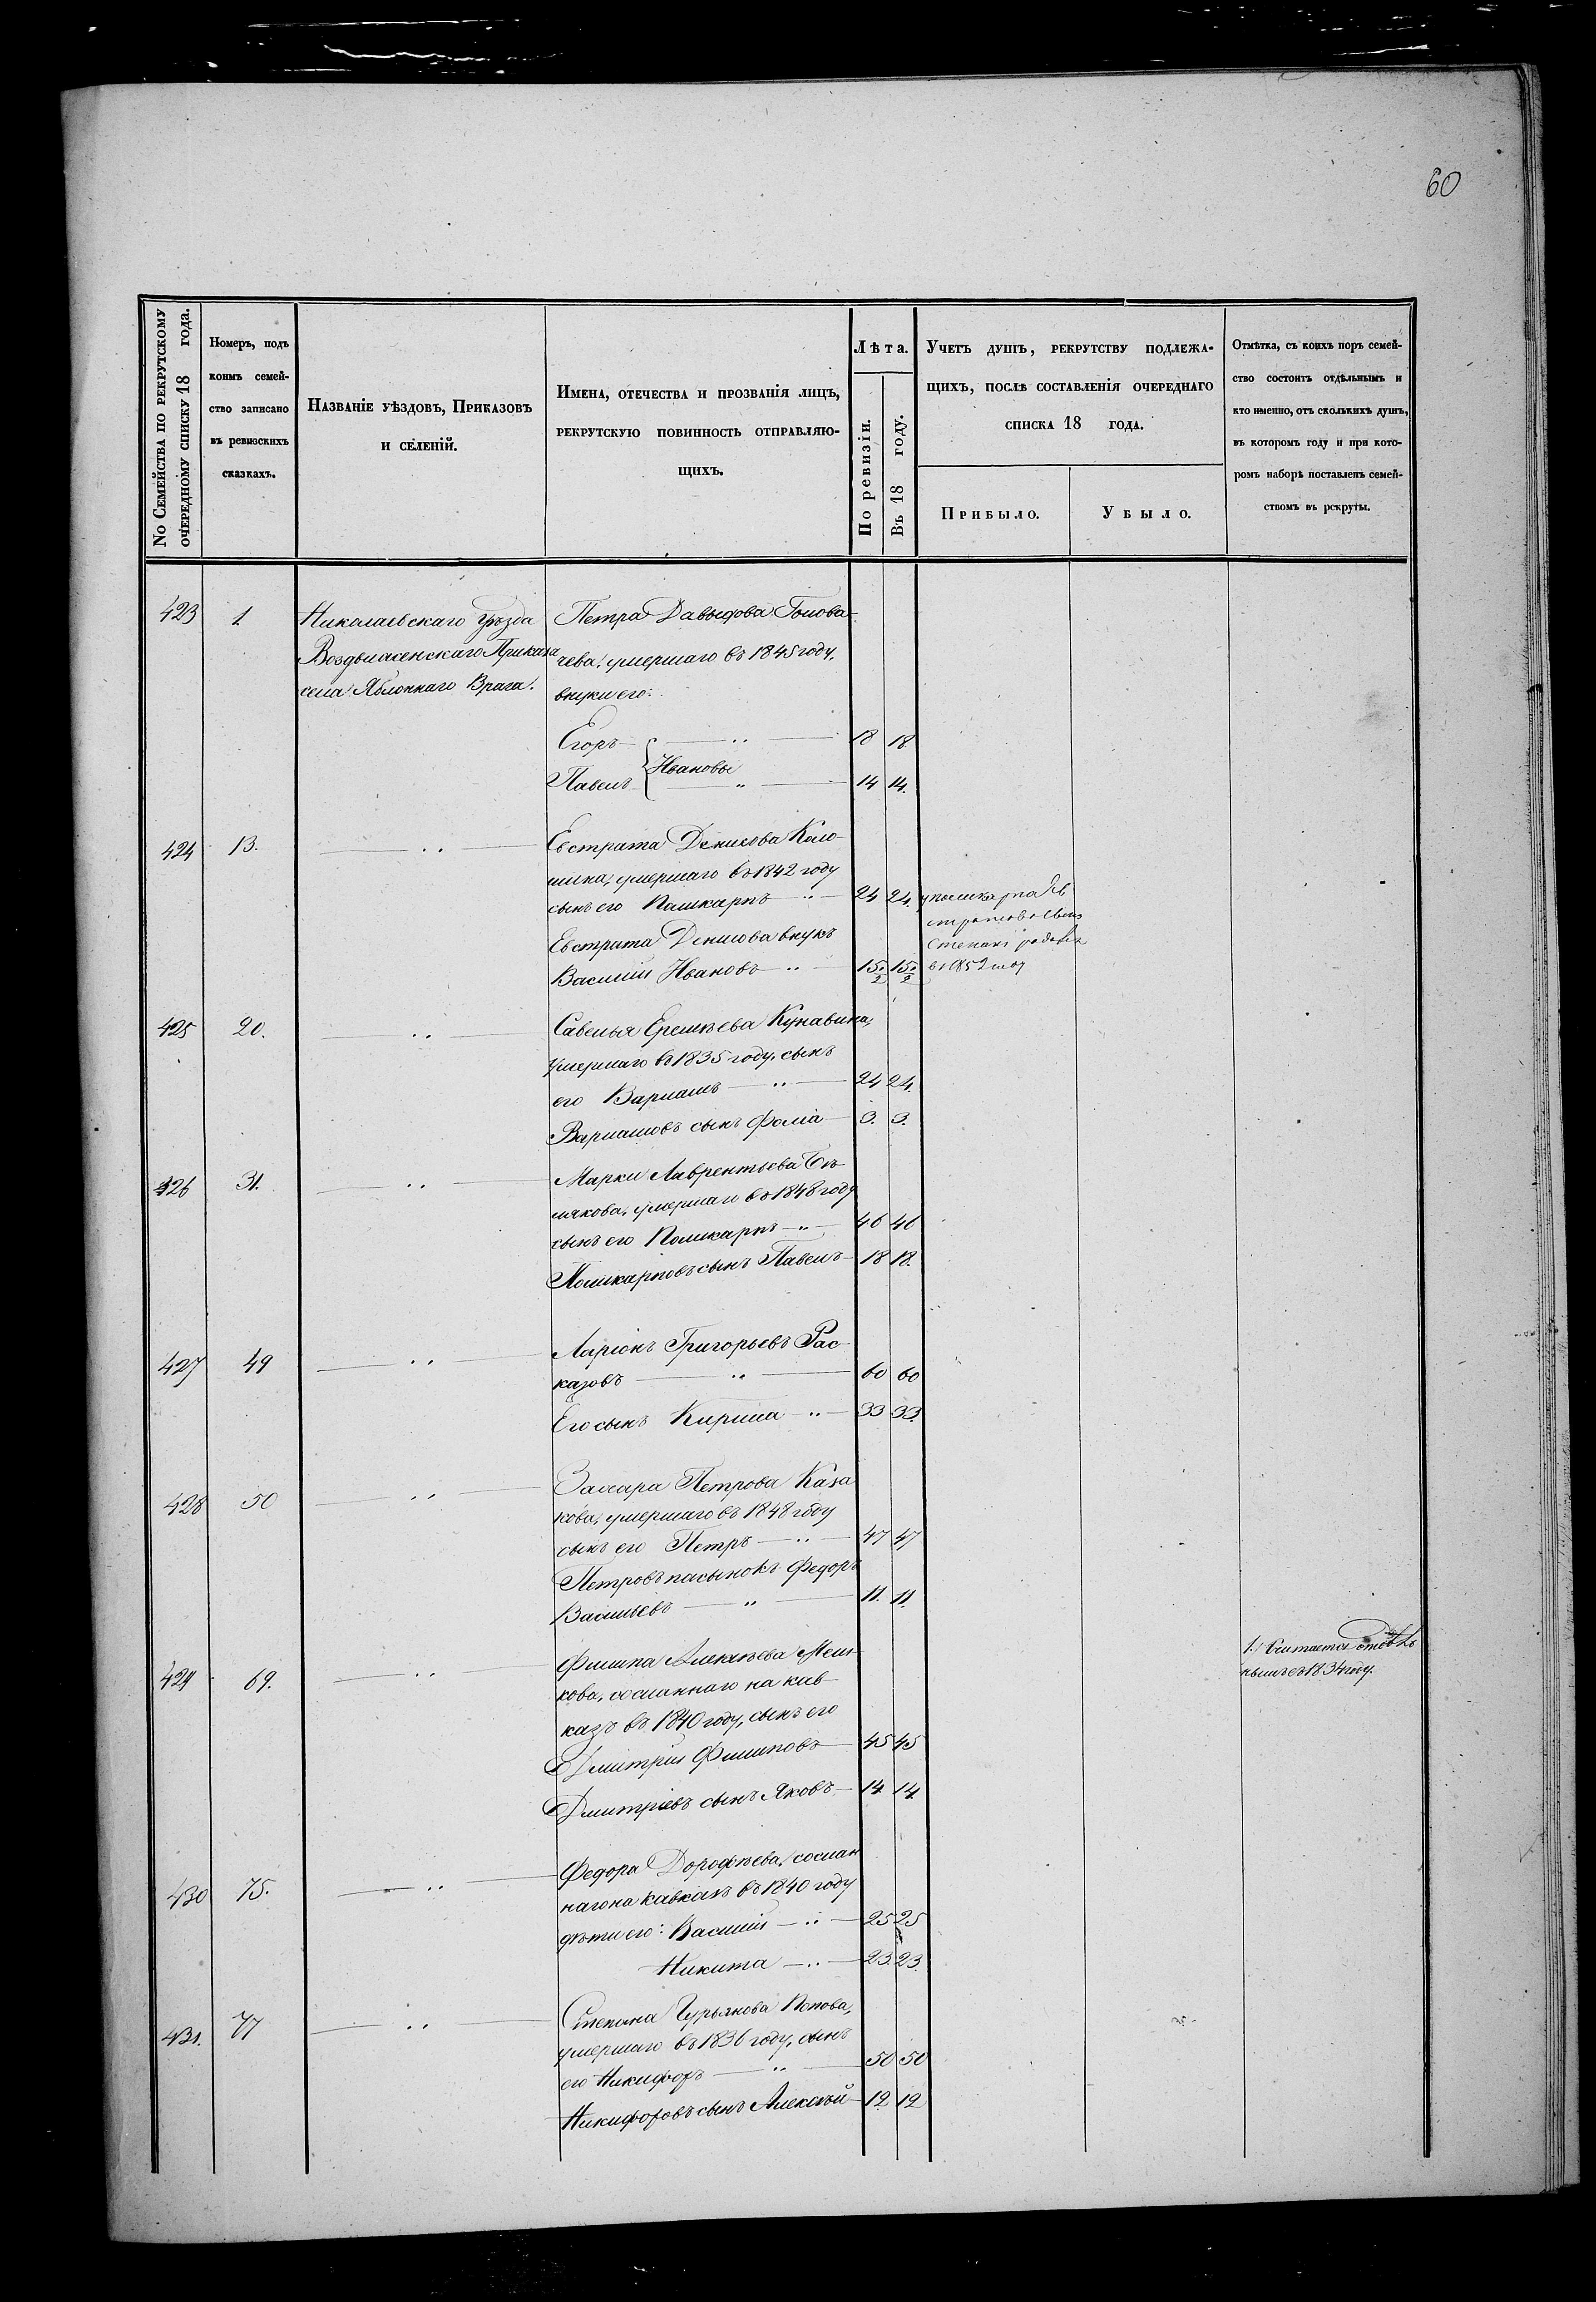 60
No Семейства по рекрутскому
очередному списку 18 года.
Номеръ, подъ
коимъ семей-
ство записано
въ ревизскихъ
сказкахъ.
Названіе уѣздовъ, Приказовъ
и селеній.
Имена, отечества и прозванія лицъ,
рекрутскую повинность отправляю-
щихъ.
Лѣта.
По ревизіи.
Въ 18 году.
Учетъ душъ, рекрутству подлежа-
щихъ, послѣ составленія очереднаго
списка 18 года.
Прибыло.
Убыло.
Отмѣтка, съ коихъ поръ семей-
ство состоитъ отдѣльнымъ и
кто именно, отъ сколькихъ душъ,
въ которомъ году и при кото-
ромъ наборѣ поставленъ семей-
ствомъ въ рекруты.
423 1 Николаевскаго Уѣзда Петра Давыдова Голова-
Воздвиженскаго Приказа чева, умершаго въ 1845 году,
села Яблоннаго Врага. внуки его:
Егоръ 18 18
Ивановы
Павелъ 14 14.
424 13. Евстрата Денисова Коло-
шина, умершаго въ 1842 году
сынъ его Поликарпъ 24 24. у Поликарпа Ев
Евстрата Денисова внукъ стратова сынъ
Степанъ родился
Василій Ивановъ 15½ 15½ въ 1852 году
425 20. Савелья Еремѣева Кунавина,
умершаго въ 1835 году, сынъ
его Варламъ 24 24.
Варламовъ сынъ Фома 3. 3.
426 31. Марки Лаврентьева
умершаго въ 1848 году
сынъ его Поликарпъ 46 46
Поликарповъ сынъ Павелъ 18 18.
427 49 Ларіонъ Григорьевъ Рас-
казовъ 60 60
Его сынъ Кирила 33 33.
428 50 Захара Петрова Каза
кова, умершаго въ 1848 году
сынъ его Петръ 47 47
Петровъ пасынокъ Федоръ
Васильевъ 11. 11.
429 69. Филипа Алексѣева Мель-
кова, сосланнаго на кав-
казъ въ 1840 году, сынъ его
Дмитрій Филиповъ 45 45
Дмитріевъ сынъ Яковъ 14 14
1. Считается отдѣль
нымъ съ 1834 году.
430 75. Федора Дорофѣева, сослан
наго на кавказъ въ 1840 году
дѣти его: Василій 25 25
Никита 23. 23.
431. 77 Степана Гурьянова Попова,
умершаго въ 1836 году, сынъ
его Никифоръ 50 50
Никифоровъ сынъ Алексѣй 12 12